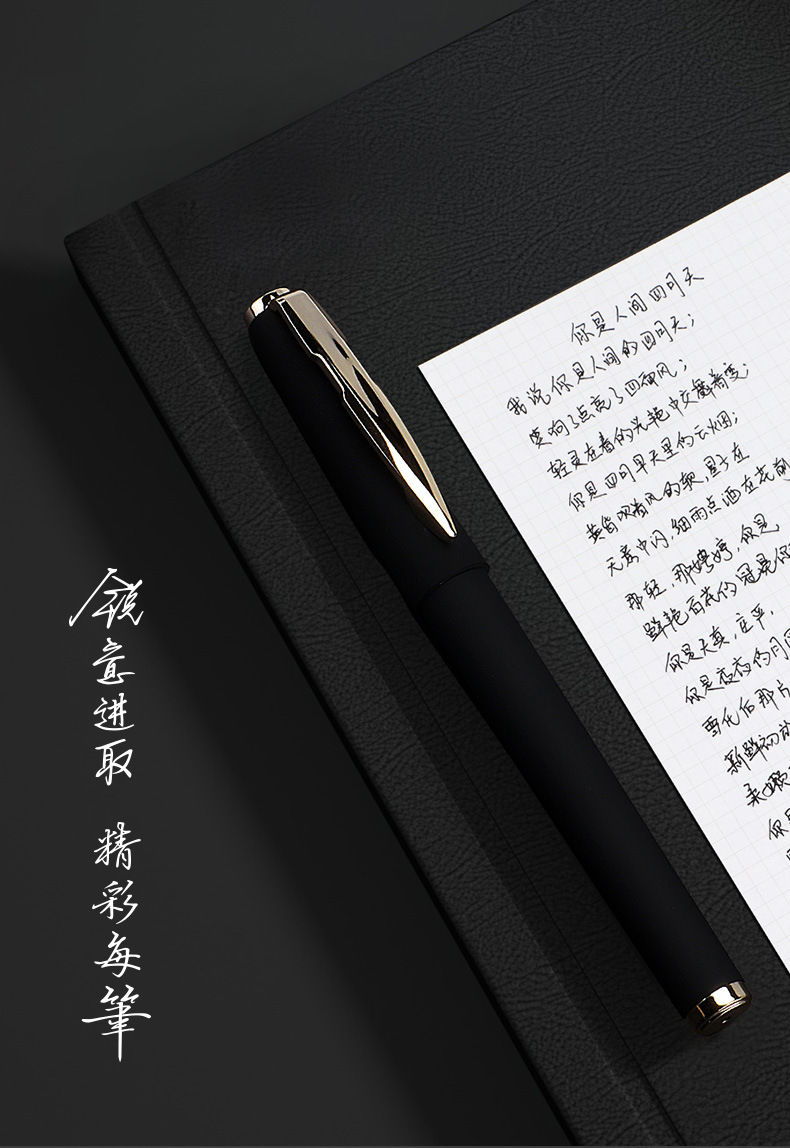 锐意进取 精彩每筆
你是人间四月天
我说你是人间的四月天;
笑响了点亮了四面风;
轻灵在春的光艳中交舞着变.
你是四月早天里的云烟;
黄昏吹着风的软,星子在
无意中闪,细雨点洒在花前
那轻,那娉婷,你是
鲜艳百花的冠冕你
你是天真,庄严,
你是夜夜的月圆
雪化后那片
新鲜初放
柔嫩
你是